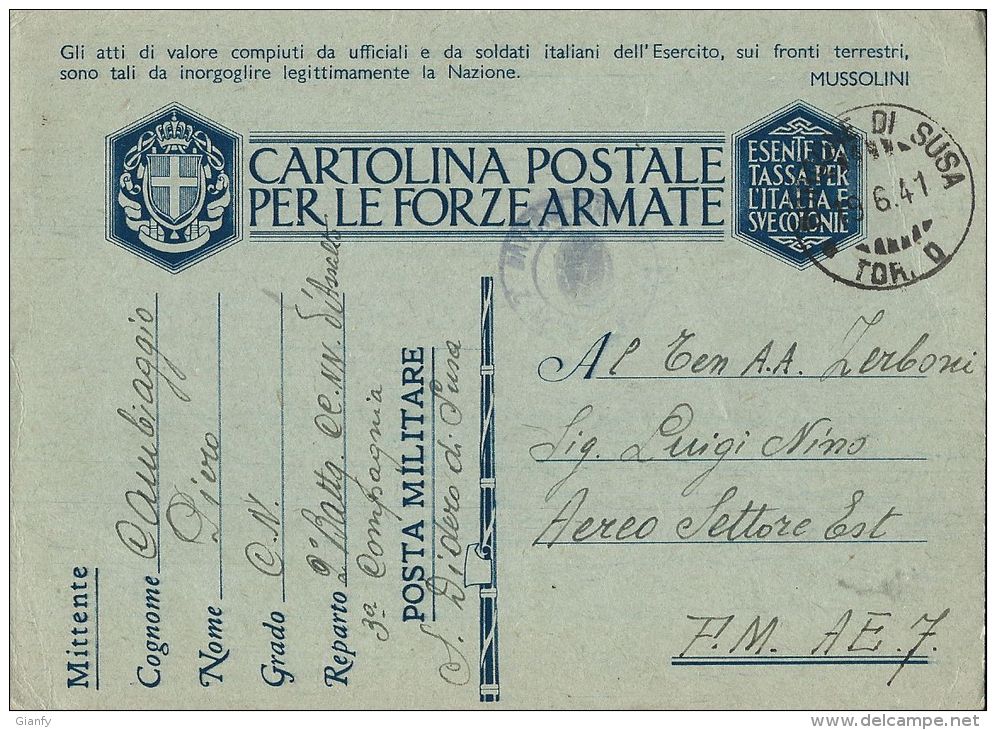 Gli atti di valore compiuti da ufficiali e da soldati italiani dell'Esercito, sui fronti terrestri,
sono tali da inorgoglire legittimamente la Nazione.
MUSSOLINI
CARTOLINA POSTALE
PER LE FORZE ARMATE
ESENTE DA
TASSA PER
L'ITALIA E
SVE COLONIE
DI SUSA
6.41
TORINO
Mittente
Cognome Cambiaggio
Nome Piero
Grado C.N.
Reparto 2° Battg. CC.NN. d'Assalto
3ª Compagnia
POSTA MILITARE
S. Didero di Susa
Al Ten A.A. Zerboni
Sig. Luigi Nino
Aereo Settore Est
F.M. A.E. 7.
Gianfy
www.delcampe.net